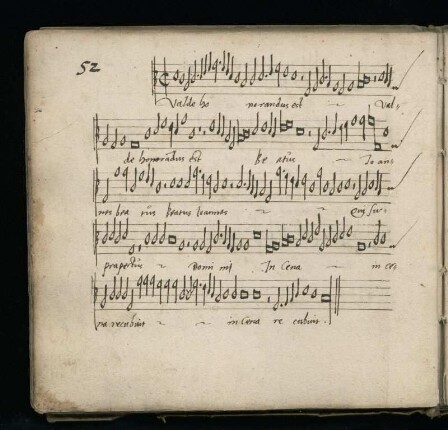 52
Valde ho norandus est Val-
de honorādus est Be atus Io an-
nes bea tus Beatus Ioannes
pra pectus Domi ni In Cena in ce-
na recubuit in Cena re cubuit.